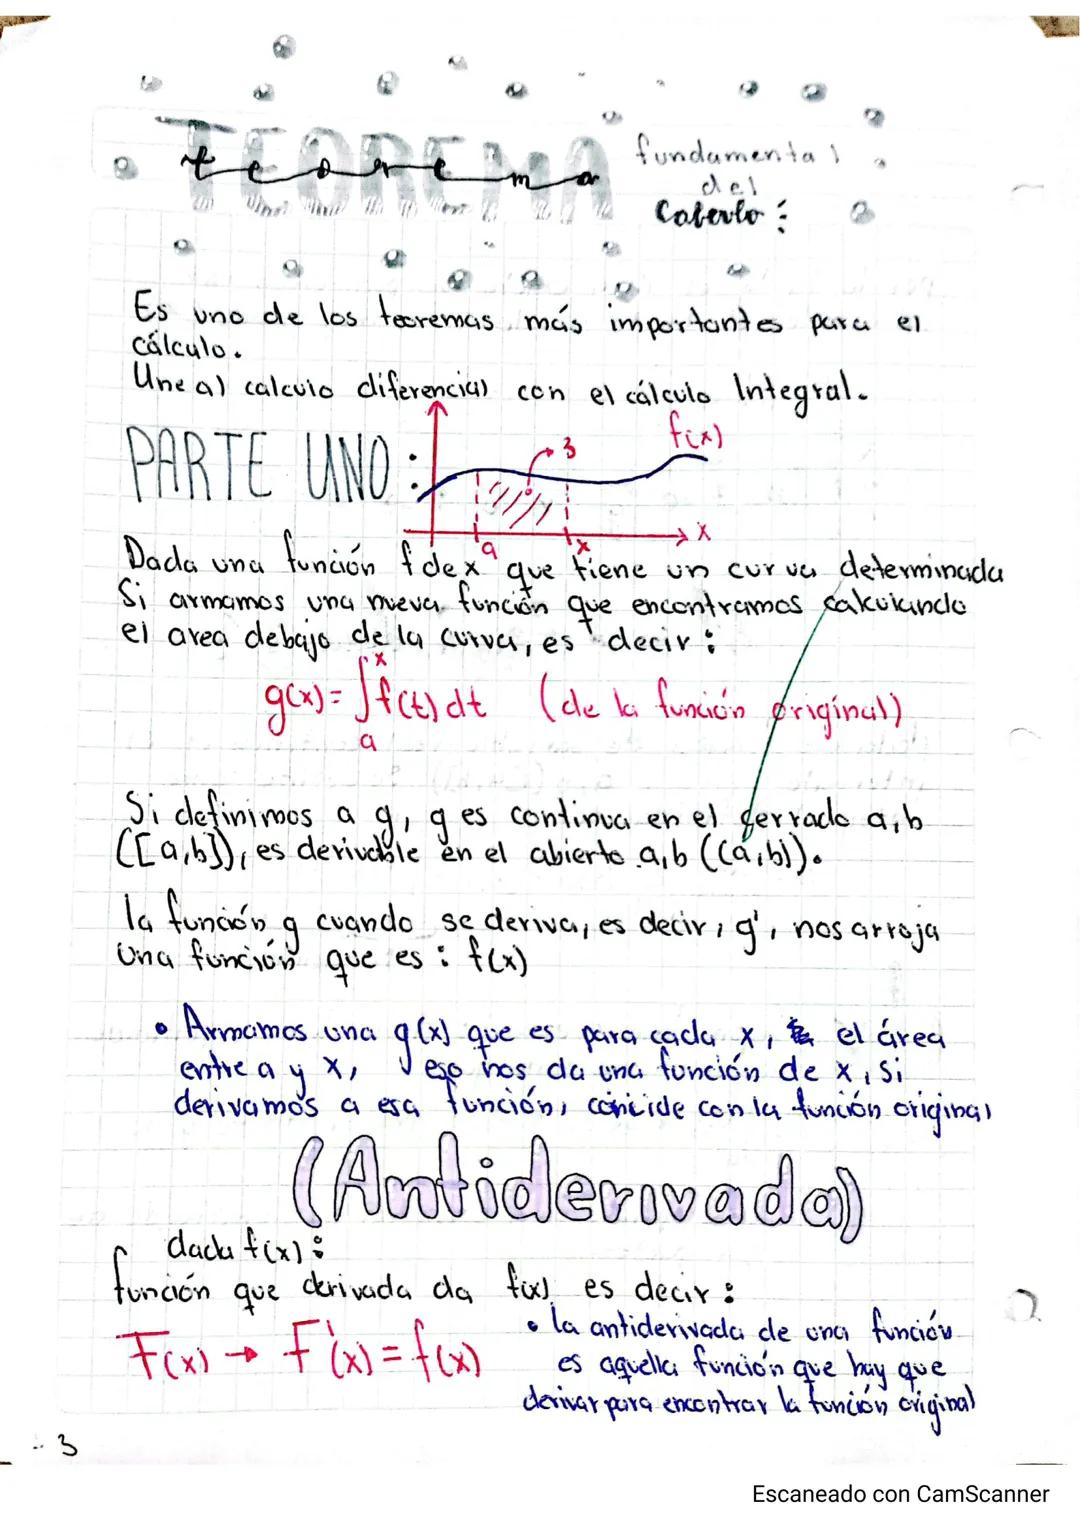 TEOREMA
teorema
fundamental
del
Calculo :
Es uno de los teoremas más importantes para el
cálculo.
Une al calculo diferencial con el cálculo Integral.
PARTE UNO :
f(x)
3
a
x
X
Dada una función f de x que tiene un curva determinada
Si armamos una nueva función que encontramos calculando
el area debajo de la curva, es decir :
g(x) = ∫ₐˣ f(t) dt (de la función original)
Si definimos a g, g es continua en el cerrado a,b
([a,b]), es derivable en el abierto a,b ((a,b)).
la función g cuando se deriva, es decir, g', nos arroja
una función que es : f(x)
• Armamos una g(x) que es para cada x, el área
entre a y x, eso nos da una función de x, Si
derivamos a esa función, coincide con la función original
(Antiderivada)
dada f(x) :
función que derivada da f(x) es decir :
F(x) → F'(x) = f(x)
• la antiderivada de una función
es aquella función que hay que
derivar para encontrar la función original
3
Escaneado con CamScanner